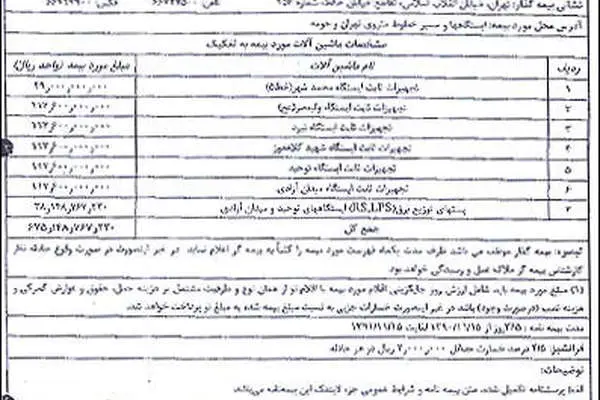 نشانی بیمه گذار: تهران، خیابان انقلاب اسلامی، تقاطع خیابان حافظ، شماره
آدرس محل مورد بیمه: ایستگاهها و مسیر خطوط متروی تهران و حومه
مشخصات ماشین آلات مورد بیمه به تفکیک
ردیف نام ماشین آلات مبلغ مورد بیمه (واحد ریال)
۱ تجهیزات ثابت ایستگاه محمد شهر(خط۵)
۲ تجهیزات ثابت ایستگاه ولیعصر(عج) ۱۱۷و۶۰۰و۰۰۰و۰۰۰
۳ تجهیزات ثابت ایستگاه نبرد ۱۱۷و۶۰۰و۰۰۰و۰۰۰
۴ تجهیزات ثابت ایستگاه شهید کلاهدوز ۱۱۷و۶۰۰و۰۰۰و۰۰۰
۵ تجهیزات ثابت ایستگاه توحید ۱۱۷و۶۰۰و۰۰۰و۰۰۰
۶ تجهیزات ثابت ایستگاه میدان آزادی ۱۱۷و۶۰۰و۰۰۰و۰۰۰
۷ پستهای توزیع برق(RS,LPS) ایستگاههای توحید و میدان آزادی ۳۸و۱۴۸و۷۶۷و۲۳۰
جمع کل ۶۷۵و۱۴۸و۷۶۷و۲۳۰
تبصره: بیمه گذار موظف می باشد ظرف مدت یکماه فهرست مورد بیمه را کتباً به بیمه گر اعلام نماید. در غیر اینصورت در صورت وقوع حادثه نظر
کارشناس بیمه گر ملاک عمل و رسیدگی خواهد بود.
(۱) مبلغ مورد بیمه باید شامل ارزش روز جایگزینی اقلام مورد بیمه با اقلام نو از همان نوع و ظرفیت مشتمل بر هزینه حمل، حقوق و عوارض گمرکی و
هزینه نصب (درصورت وجود) باشد در غیر اینصورت خسارات جزیی به نسبت مبلغ بیمه شده به مبلغ نو پرداخت خواهد شد.
مدت بیمه نامه : ۳۶۵روز از لغایت
فرانشیز: درصد خسارت حداقل ۲و۰۰۰و۰۰۰ ریال در هر حادثه
توضیحات:
الف) پرسشنامه تکمیل شده، متن بیمه نامه و شرایط عمومی جزء لاینفک این بیمه نامه می باشد.